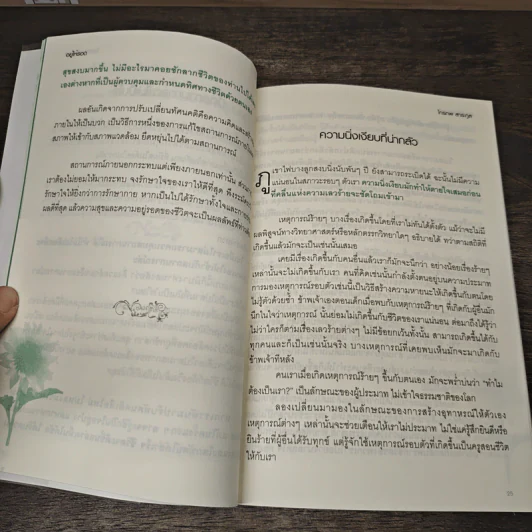 อยู่ให้รอด
สุขสงบมากขึ้น ไม่มีอะไรมาคอยชักลากชีวิตของท่านไปได้
เองต่างหากที่เป็นผู้ควบคุมและกำหนดทิศทางชีวิตด้วยตนเอง
ผลอันเกิดจากการปรับเปลี่ยนทัศนคติคือความคิดและ
ภายในให้เป็นบวก เป็นวิธีการหนึ่งของการแก้ไขสถานการณ์
สภาพให้เข้ากับสภาพแวดล้อม ยืดหยุ่นไปได้ตามสถานการณ์
สถานการณ์ภายนอกกระทบแต่เพียงภายนอกเท่านั้น
เราต้องไม่ยอมให้มากระทบ จงรักษาใจของเราให้ดีที่สุด พึงระลึก
รักษาใจให้ยิ่งกว่าการรักษากาย หากเป็นไปได้รักษาทั้งใจและกาย
ผลดีที่สุด แล้วความสุขและความอยู่รอดของชีวิตจะเป็นผลลัพธ์ที่
ความนิ่งเงียบที่น่ากลัว
ภูเขาไฟบางลูกสงบนิ่งนับพันๆ ปี ยังสามารถระเบิดได้ ฉะนั้นไม่มีความ
แน่นอนในสภาวะรอบๆ ตัวเรา ความนิ่งเงียบมักทำให้ตายใจเสมอก่อน
ที่คลื่นแห่งความเลวร้ายจะซัดโถมเข้ามา
เหตุการณ์ร้ายๆ บางเรื่องเกิดขึ้นโดยที่เราไม่ทันได้ตั้งตัว แม้ว่าจะไม่มี
ผลพิสูจน์ทางวิทยาศาสตร์หรือหลักตรรกวิทยาใดๆ อธิบายได้ ทว่าตามสถิติที่
เกิดขึ้นแล้วมักจะเป็นเช่นนั้นเสมอ
เคยมีเรื่องเกิดขึ้นกับคนอื่นแล้วเราก็มักจะนึกว่า อย่างน้อยเรื่องร้ายๆ
เหล่านั้นจะไม่เกิดขึ้นกับเรา คนที่คิดเช่นนั้นกำลังตั้งตนอยู่บนความประมาท
การมองเหตุการณ์รอบตัวเช่นนี้เป็นวิธีสร้างความหายนะให้เกิดขึ้นกับตนโดย
ไม่รู้ตัวด้วยซ้ำ ข้าพเจ้าเองตอนเด็กเมื่อพบกับเหตุการณ์ร้ายๆ ที่เกิดกับผู้อื่นมัก
นึกในใจว่าเหตุการณ์ นั้นย่อมไม่เกิดขึ้นกับชีวิตของเราแน่นอน ต่อมาถึงได้รู้ว่า
ไม่ว่าใครก็ตามเรื่องเลวร้ายต่างๆ ไม่มีข้อยกเว้นทั้งนั้น สามารถเกิดขึ้นได้กับ
ทุกคนและก็เป็นเช่นนั้นจริง บางเหตุการณ์ที่เคยพบเห็นมักจะมาเกิดกับ
ข้าพเจ้าทีหลัง
คนเราเมื่อเกิดเหตุการณ์ร้ายๆ ขึ้นกับตนเอง มักจะพร่ำบ่นว่า “ทำไม
ต้องเป็นเรา?” เป็นลักษณะของผู้ประมาท ไม่เข้าใจธรรมชาติของโลก
ลองเปลี่ยนมามองในลักษณะของการสร้างอุทาหรณ์ให้ตัวเอง
เหตุการณ์ต่างๆ เหล่านั้นจะช่วยเตือนให้เราไม่ประมาท ไม่ใช่แค่รู้สึกยินดีหรือ
ยินร้ายที่ผู้อื่นได้รับทุกข์ แต่รู้จักใช้เหตุการณ์รอบตัวที่เกิดขึ้นเป็นครูสอนชีวิต
ให้กับเรา